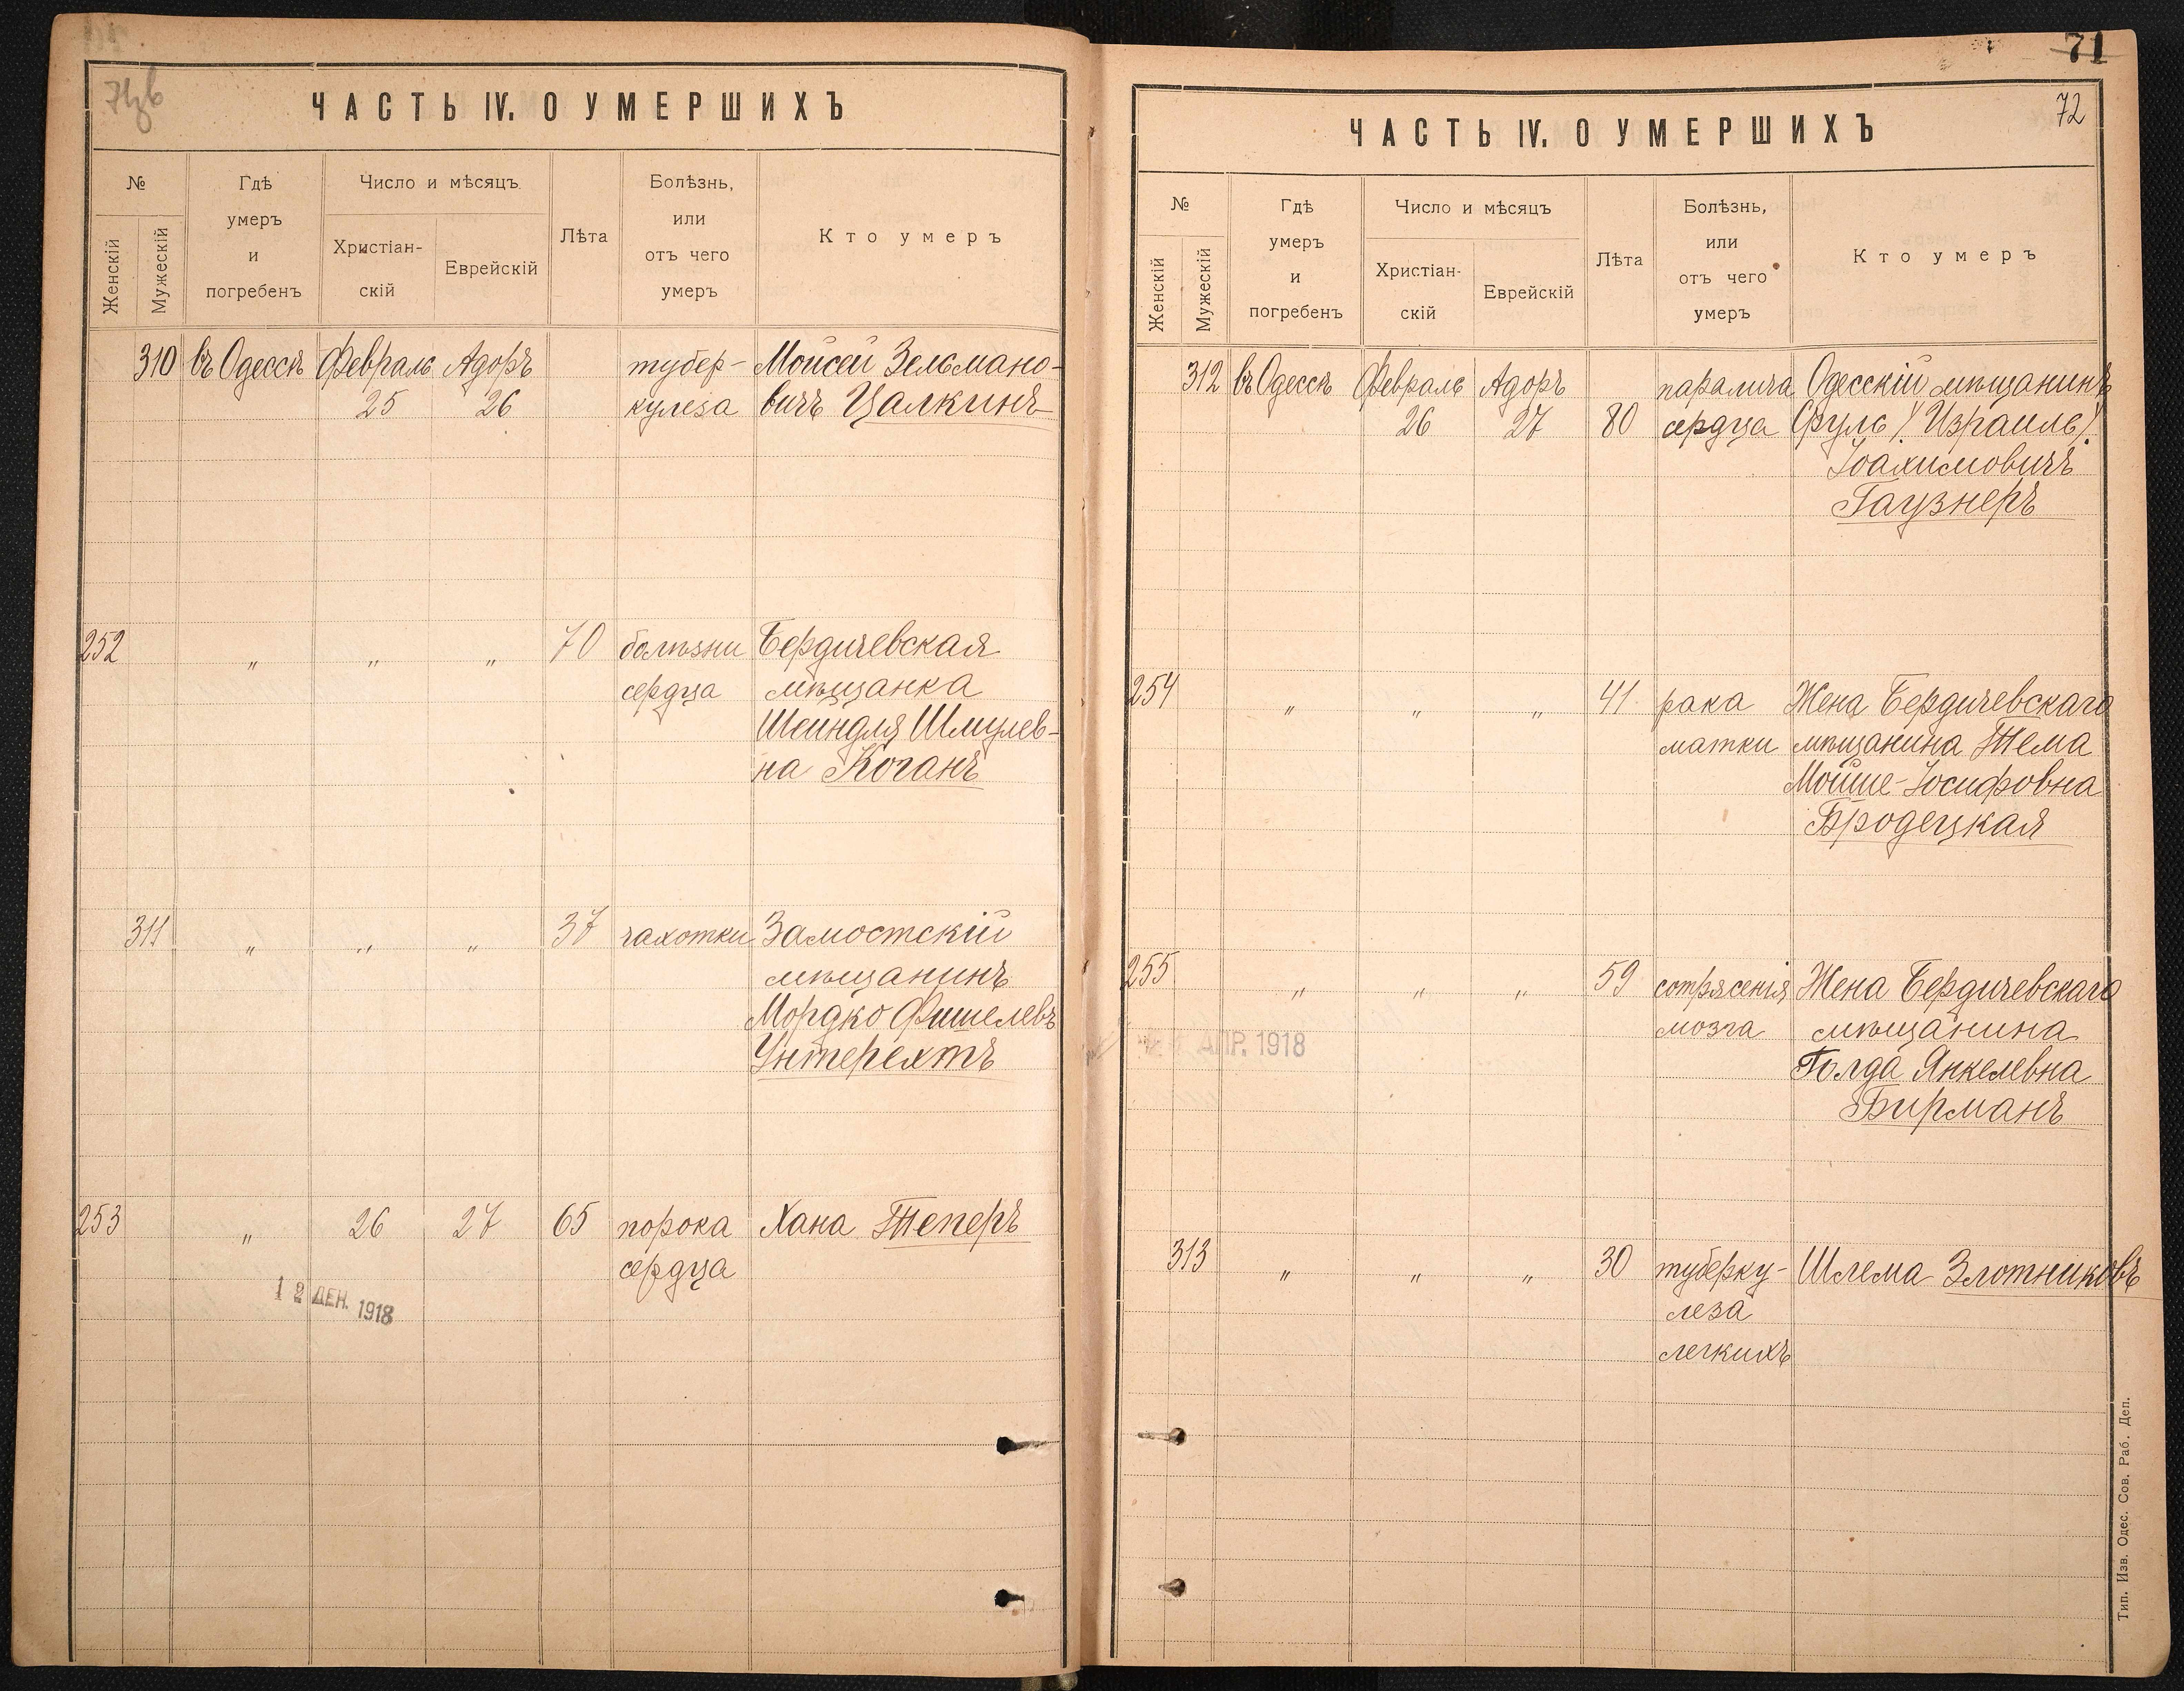 ЧАСТЬ IV. О УМЕРШИХЪ
№
Женскій
Мужескій
Гдѣ
умеръ
и
погребенъ
Число и мѣсяцъ
Христіан-
скій
Еврейскій
Лѣта
Болѣзнь,
или
отъ чего
умеръ
Кто умеръ
310 въ Одессѣ Февраль Адоръ тубер- Мойсей Зельмано-
25 26 кулеза вичъ Цалкинъ
252 " " " 70 болѣзни Бердичевская
сердца мѣщанка
Шейндля Шмулев-
на Коганъ
311 " " " 37 чахотки Замостскій
мѣщанинъ
Мордко Фишелевъ
Унтерехтъ
253 " 26 27 65 порока Хана Теперъ
сердца
12 ДЕК. 1918
71
72
ЧАСТЬ IV. О УМЕРШИХЪ
№
Женскій
Мужескій
Гдѣ
умеръ
и
погребенъ
Число и мѣсяцъ
Христіан-
скій
Еврейскій
Лѣта
Болѣзнь,
или
отъ чего
умеръ
Кто умеръ
312 въ Одессѣ Февраль Адоръ паралича Одесскій мѣщанинъ
26 27 80 сердца Сруль (Израиль)
Іоахимовичъ
Гаузнеръ
254 " " " 41 рака Жена Бердичевскаго
матки мѣщанина Тема
Мойше-Іосифовна
Бродецкая
255 " " " 59 сотрясенія Жена Бердичевскаго
мозга мѣщанина
АПР. 1918
Голда Янкелевна
Бирманъ
313 " " " 30 туберку- Шлема Злотниковъ
леза
легкихъ
Тип. Изв. Одес. Сов. Раб. Деп.